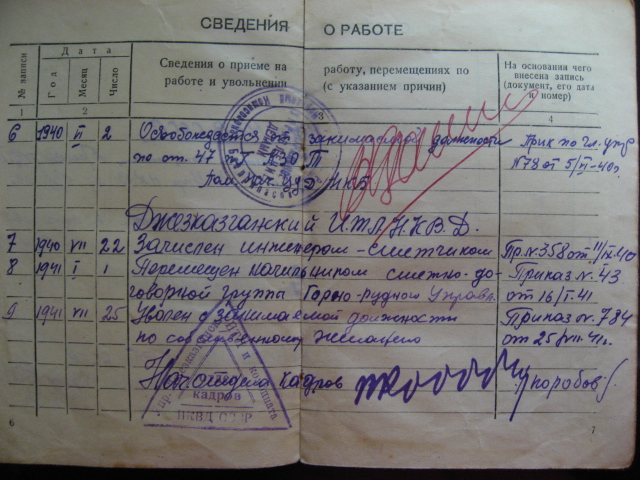 СВЕДЕНИЯ О РАБОТЕ
№ записи
Дата
Год
Месяц
Число
Сведения о приеме на работу, перемещениях по
работе и увольнении (с указанием причин)
На основании чего
внесена запись
(документ, его дата
и номер)
1 2 3 4
6 1940 VI 2 Освобождается от занимаемой должности Прик по гл. упр
по ст. 47 № 78 от 5/VI-40г.
Джезказганский ИТЛ НКВД.
7 1940 VII 22 Зачислен инженером-сметчиком Пр. № 358 от
8 1941 I 1 Перемещен начальником сметно-до- Приказ № 43
говорной группы Горно-Рудного Управл. от 16/I-41.
9 1941 VII 25 Уволен с занимаемой должности Приказ № 784
по собственному желанию от 25/VII-41г.
Нач. отдела кадров
кадров
НКВД СССР
6 7